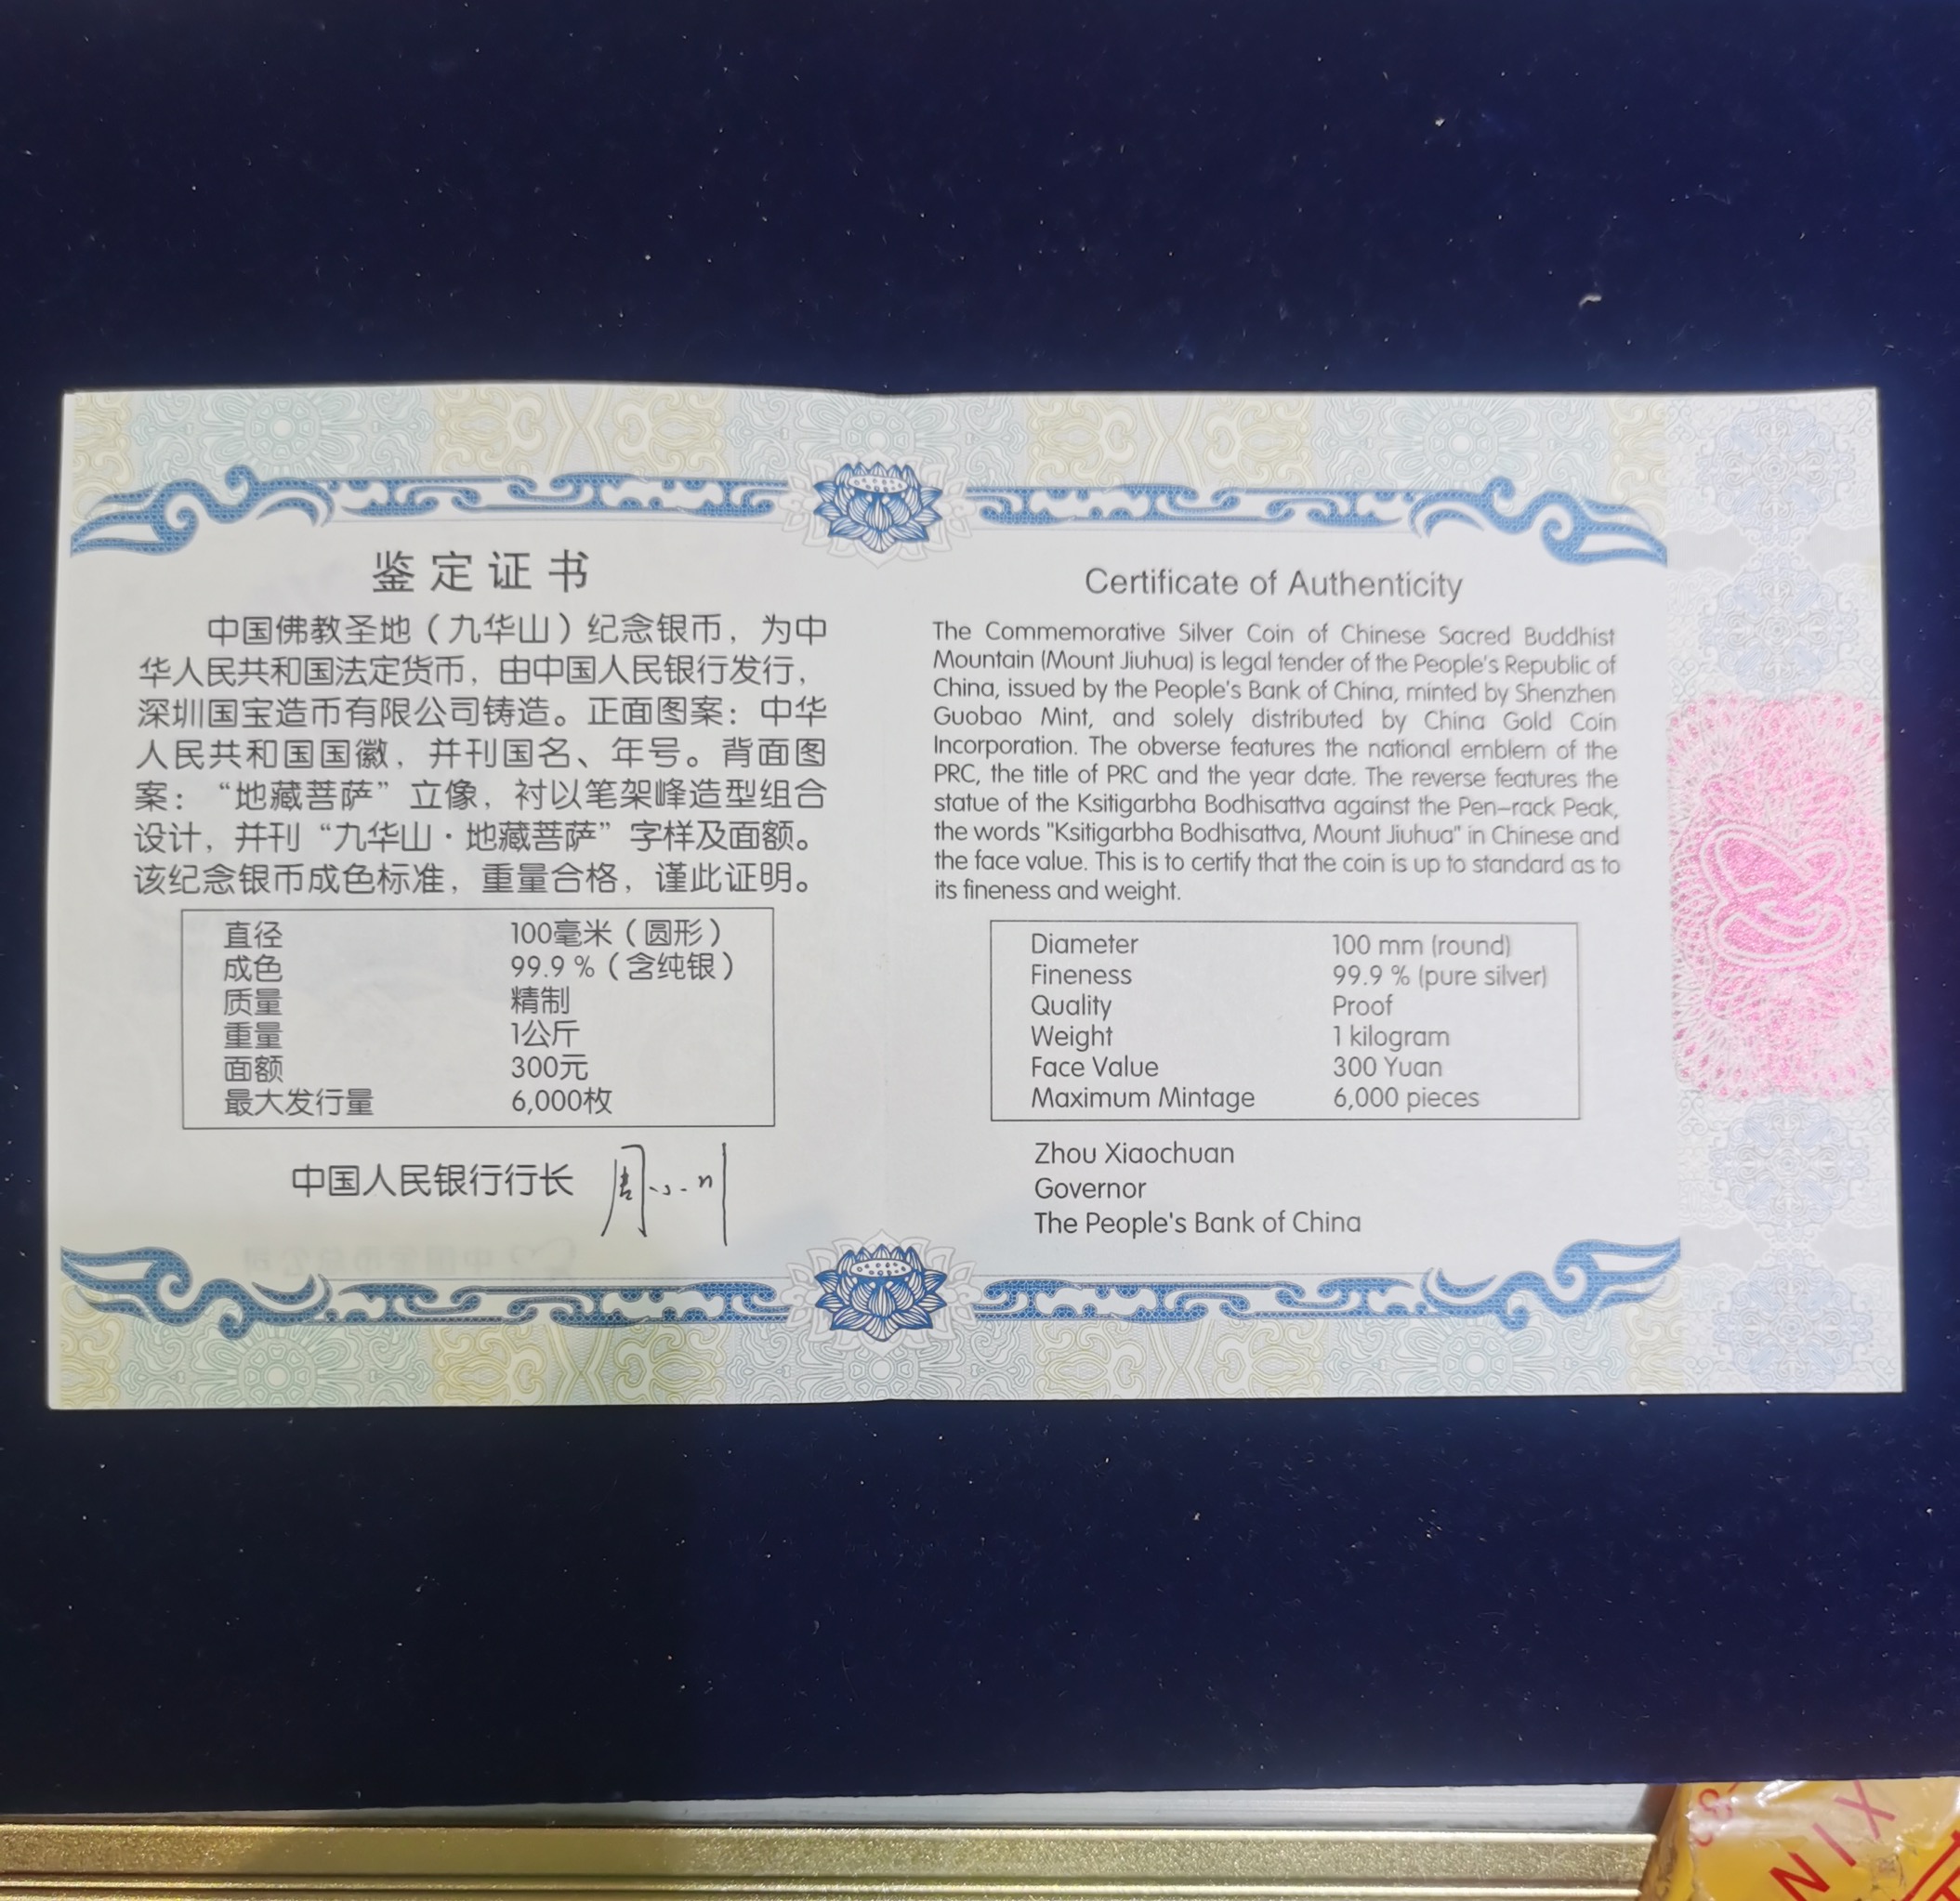 鉴定证书
中国佛教圣地（九华山）纪念银币，为中
华人民共和国法定货币，由中国人民银行发行，
深圳国宝造币有限公司铸造。正面图案：中华
人民共和国国徽，并刊国名、年号。背面图
案：“地藏菩萨”立像，衬以笔架峰造型组合
设计，并刊“九华山·地藏菩萨”字样及面额。
该纪念银币成色标准，重量合格，谨此证明。
直径 100毫米（圆形）
成色 99.9 %（含纯银）
质量 精制
重量 1公斤
面额 300元
最大发行量 6,000枚
中国人民银行行长 周小川
Certificate of Authenticity
The Commemorative Silver Coin of Chinese Sacred Buddhist
Mountain (Mount Jiuhua) is legal tender of the People's Republic of
China, issued by the People's Bank of China, minted by Shenzhen
Guobao Mint, and solely distributed by China Gold Coin
Incorporation. The obverse features the national emblem of the
PRC, the title of PRC and the year date. The reverse features the
statue of the Ksitigarbha Bodhisattva against the Pen-rack Peak,
the words "Ksitigarbha Bodhisattva, Mount Jiuhua" in Chinese and
the face value. This is to certify that the coin is up to standard as to
its fineness and weight.
Diameter 100 mm (round)
Fineness 99.9 % (pure silver)
Quality Proof
Weight 1 kilogram
Face Value 300 Yuan
Maximum Mintage 6,000 pieces
Zhou Xiaochuan
Governor
The People's Bank of China